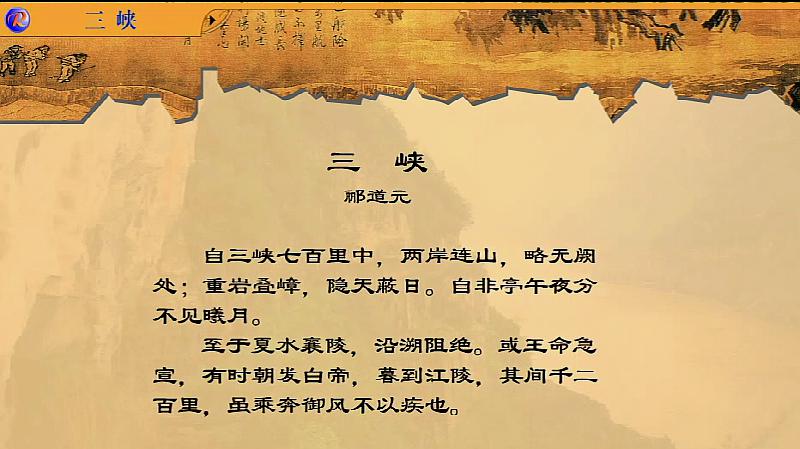 三 峡
三 峡
郦道元
自三峡七百里中，两岸连山，略无阙
处；重岩叠嶂，隐天蔽日。自非亭午夜分
不见曦月。
至于夏水襄陵，沿溯阻绝。或王命急
宣，有时朝发白帝，暮到江陵，其间千二
百里，虽乘奔御风不以疾也。